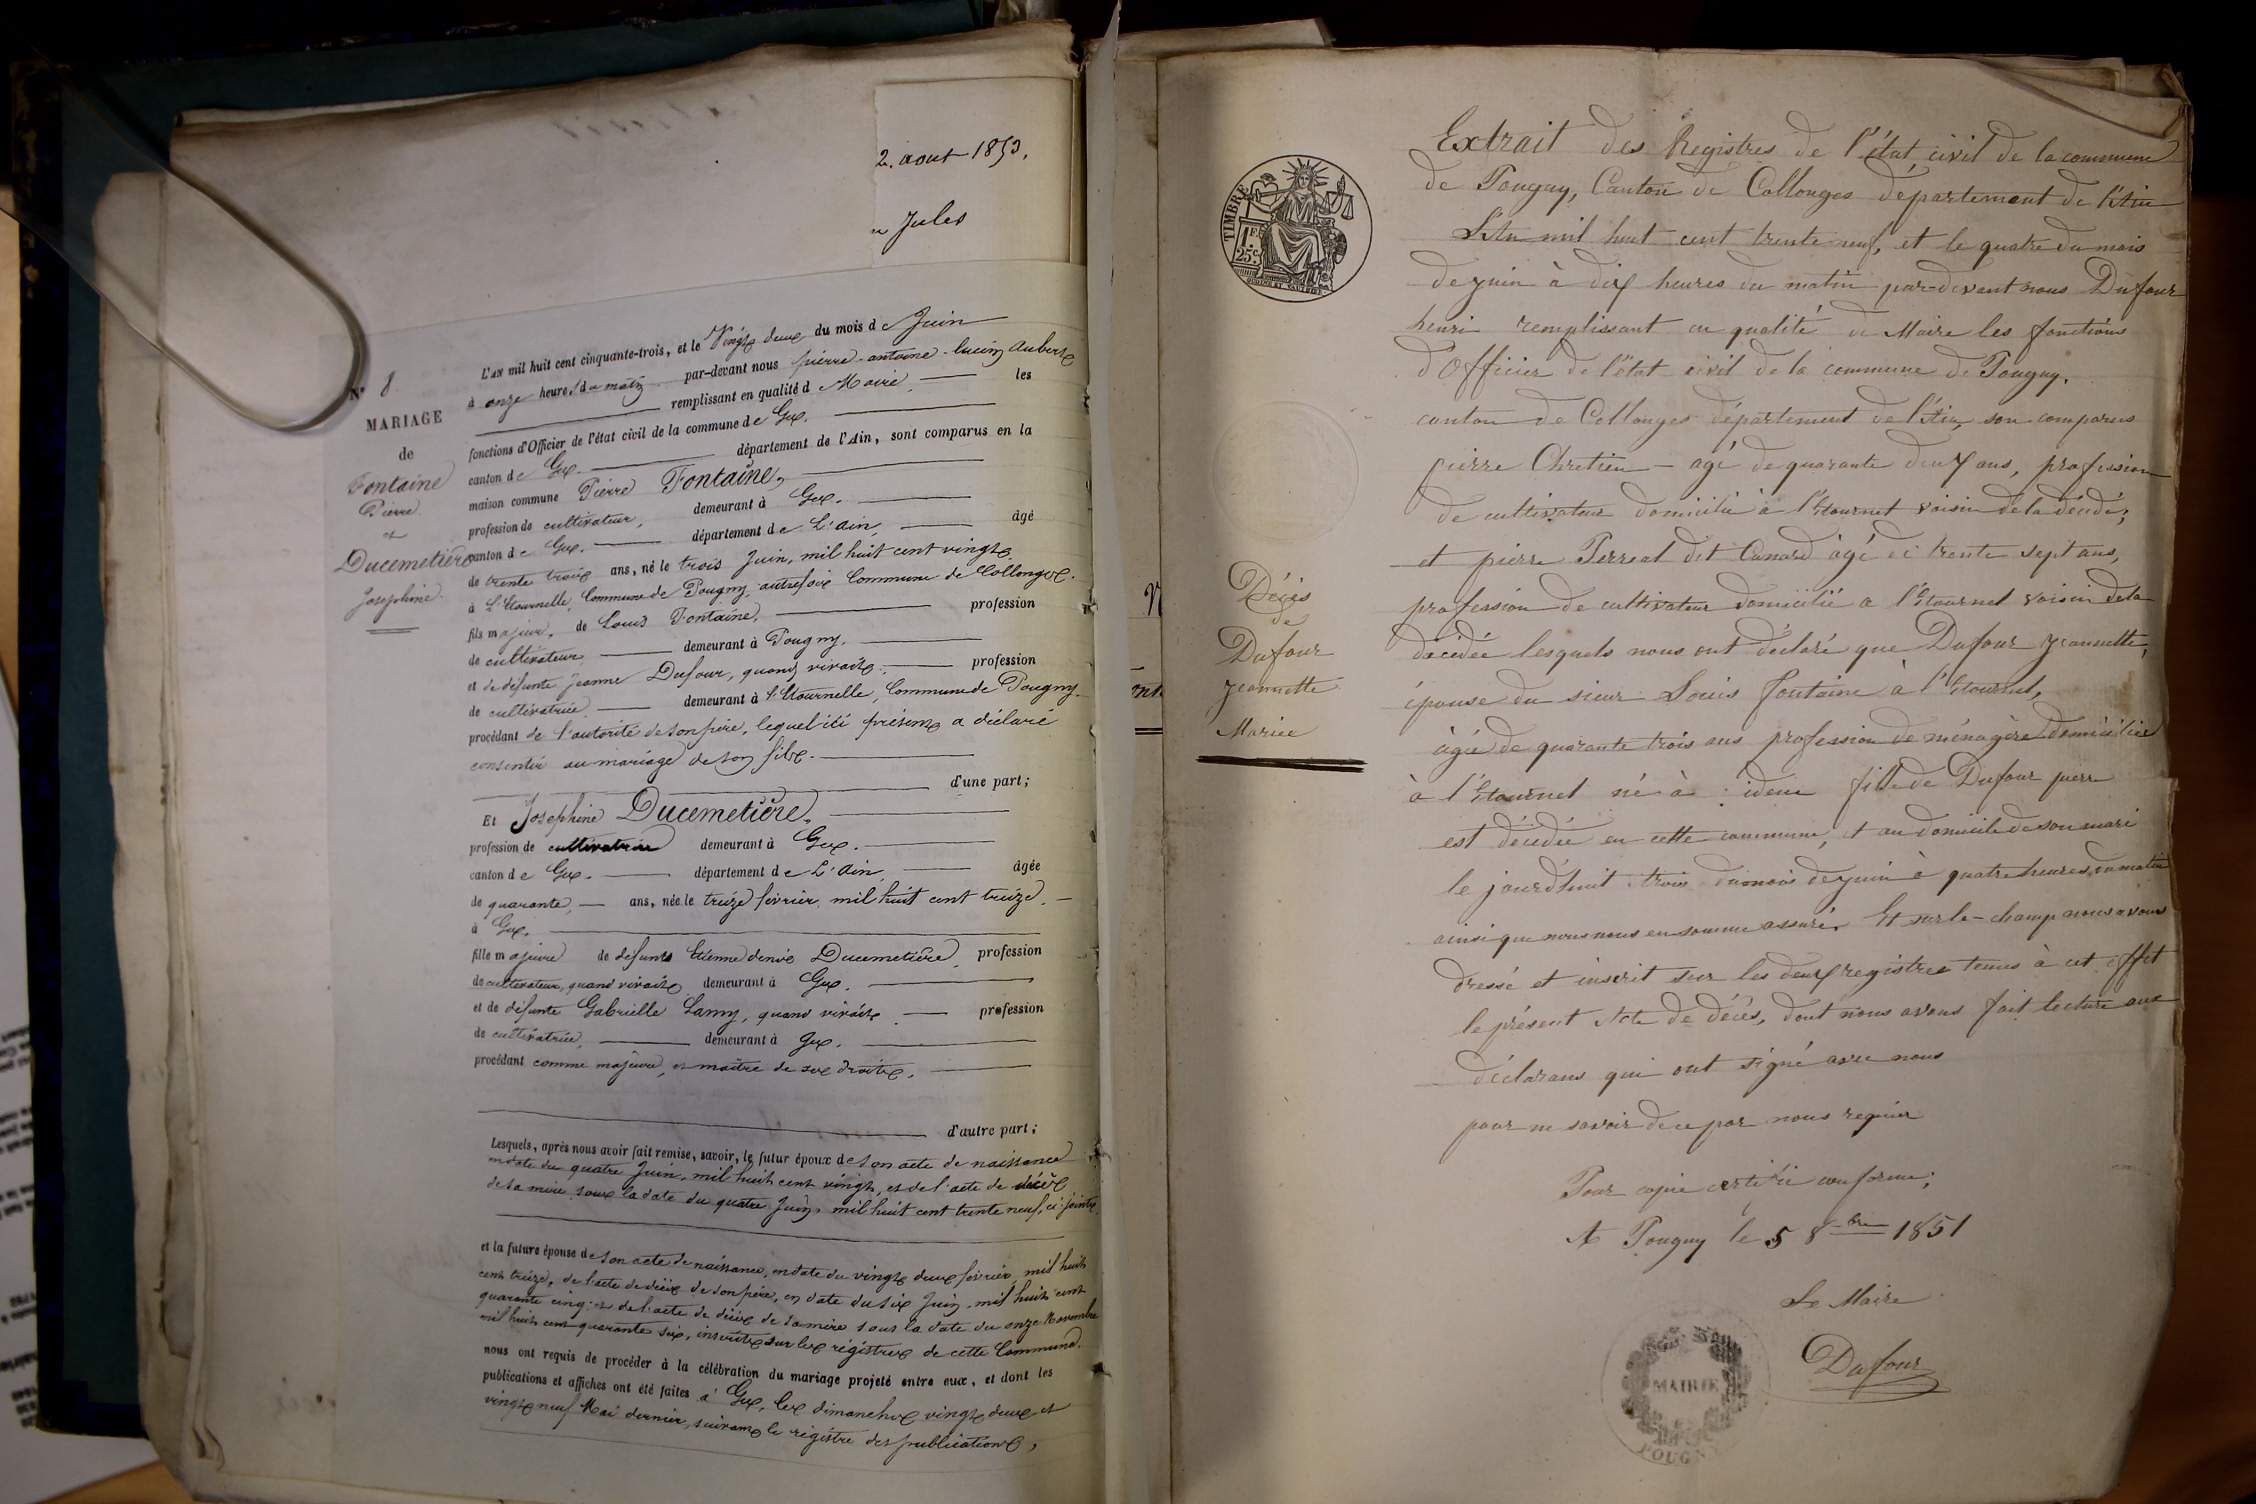 2. aout 1853.
Jules
N° 8
MARIAGE
de
Fontaine
Pierre
et
Ducemetière
Josephine
L'AN mil huit cent cinquante-trois, et le Vingt deux du mois de Juin
à onze heures du matin par-devant nous pierre-antoine-lucien Aubert
remplissant en qualité d Maire les
fonctions d'Officier de l'état civil de la commune de Gex.
canton de Gex. département de l'Ain, sont comparus en la
maison commune Pierre Fontaine,
profession de cultivateur, demeurant à Gex.
canton de Gex. département de L'ain, âgé
de trente trois ans, né le trois Juin, mil huit cent vingt
à L'Etournelle, Commune de Pougny, autrefois Commune de Collonges.
fils majeur, de Louis Fontaine, profession
de cultivateur demeurant à Pougny.
et de défunte Jeanne Dufour, quand vivait, profession
de cultivatrice demeurant à l'Etournelle, Commune de Pougny
procédant de l'autorité de son père, lequel ici présent a déclaré
consentir au mariage de son fils.
d'une part;
Et Josephine Ducemetière,
profession de cultivatrice demeurant à Gex.
canton de Gex. département de L'ain, âgée
de quarante, ans, née le treize février mil huit cent treize.
à Gex.
fille majeure de défunt Etienne denis Ducemetière, profession
de cultivateur, quand vivait demeurant à Gex.
et de défunte Gabrielle Lamy, quand vivait profession
de cultivatrice, demeurant à Gex.
procédant comme majeure, et maître de ses droits.
d'autre part;
Lesquels, après nous avoir fait remise, savoir, le futur époux de son acte de naissance
en date du quatre Juin, mil huit cent vingt, et de l'acte de décès
de sa mère sous la date du quatre Juin, mil huit cent trente neuf, ci-joints
et la future épouse de son acte de naissance, en date du vingt deux février mil huit
cent treize, de l'acte de décès de son père, en date du six Juin mil huit cent
quarante cinq, et de l'acte de décès de sa mère sous la date du onze Novembre
mil huit cent quarante six, inscrits sur les régistres de cette Commune.
nous ont requis de procéder à la célébration du mariage projeté entre eux, et dont les
publications et affiches ont été faites à Gex, les dimanches vingt deux et
vingt neuf Mai dernier, suivant le régistre des publications,
TIMBRE
1 F.
25 c.
Extrait des Registres de l'état civil de la commune
de Pougny, Canton de Collonges département de l'Ain
L'An mil huit cent trente neuf, et le quatre du mois
de juin à dix heures du matin par-devant nous Dufour
henri remplissant en qualité de Maire les fonctions
d'Officier de l'état civil de la commune de Pougny.
canton de Collonges département de l'Ain, son comparus
pierre Chretien - agé de quarante deux ans, profession
de cultivateur domicilié à l'Etournel voisin de la décédé;
et pierre Perreal dit Canard âgé de trente sept ans,
profession de cultivateur domicilié a l'Etournel voisin de la
décédée lesquels nous ont déclaré que Dufour jeannette,
épouse du sieur Louis fontaine à l'Etournel,
âgée de quarante trois ans profession de ménagère domiciliée
à l'Etournel né à : idem fille de Dufour pierre
est décédée en cette commune, et au domicile de son mari
le jourd'huit trois du mois de juin à quatre heures du matin
ainsi que nous nous en somme assuré. Et sur le-champ nous avons
dressé et inscrit sur les deux registres tenus à cet effet
le présent Acte de décès, dont nous avons fait lecture aux
déclarans qui ont signé avec nous
pour ne savoir de ce par nous requier
Décès
de
Dufour
jeannette
Mariée
Pour copie certifié conforme;
A Pougny le 5 8bre 1851
Le Maire
Dufour
MAIRIE
POUGNY